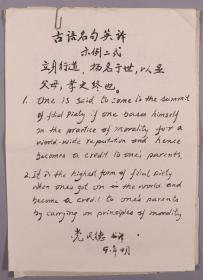 古语名句英译
示例二式
立身行道，扬名于世，以显
父母，孝之终也。
1. One is said to come to the summit
of filial Piety if one bases himself
in the practice of morality for a
world-wide reputation and hence
becomes a credit to one's parents.
2. It is the highest form of filial piety
when ones get on in the world and
become a credit to one's parents
by carrying on principles of morality
党凤德